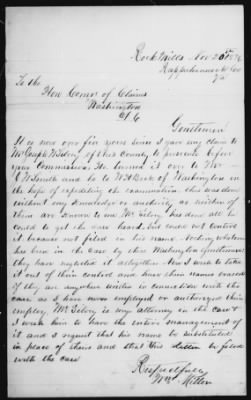 Rock Mills Nov 20th
Rappahannock Co
Va
To the
Hon Comrs of Claims
Washington
Gentlemen
It is now over five years since I gave my claim to
Mr Joseph W Selvey of this county to prosecute before
your Commission. He turned it over to Mr
Smith and to of Washington in
the hope of expediting the examination. This was done
without any knowledge or authority as neither of
them are known to me. Mr Selvey has done all he
could to get the case heard. But could not control
it because not filed in his name. Nobody else
has been in the case by these Washington Gentlemen
they have neglected it altogether. Now I wish to take
it out of their control and have their names erased
if they are anywhere written in connection with the
case as I have never employed or authorized their
employ. Mr Selvey is my attorney in the case &
I wish him to have the entire management of
it and I request that his name be substituted
in place of theirs and that this letter be filed
with the case
Respectfully
Wm